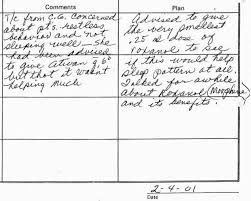 Comments
T/c from C.G. Concerned
about pt's. restless
behavior and not
sleeping well - She
had been advised
to give Ativan q 6°
but that it wasn't
helping much
Plan
Advised to give
the very smallest
.25 dose of
roxanol to see
if this would help
sleep pattern at all.
Talked for awhile
about Roxanol (Morphine
and its benefits.
2-4-01
Date